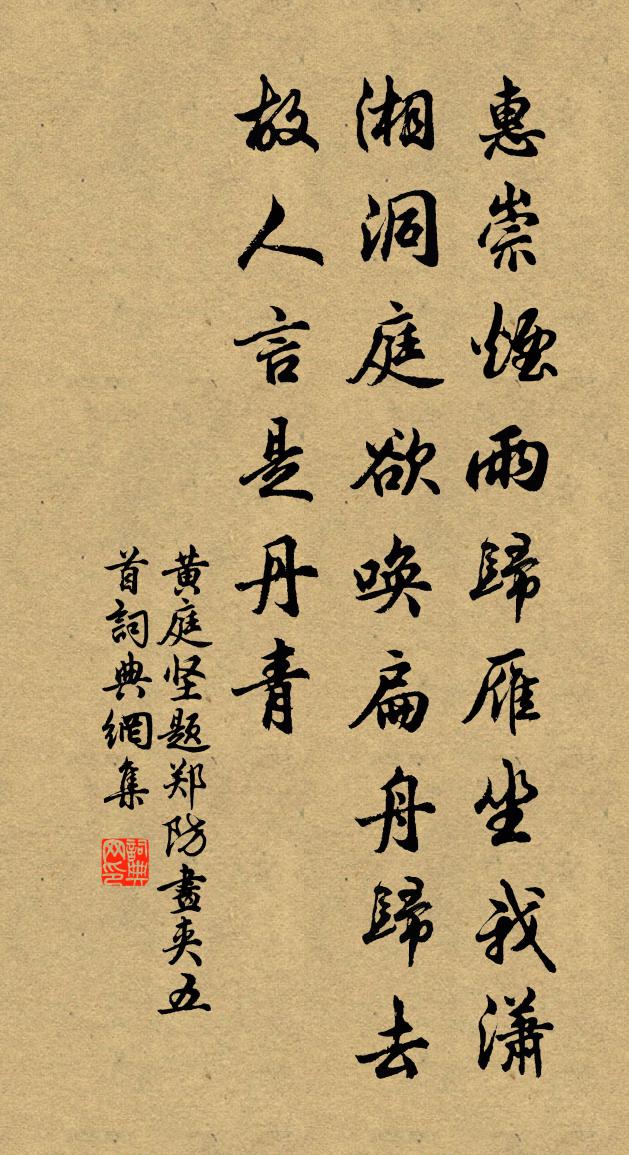 惠崇煙雨歸雁坐我瀟
湘洞庭欲唤扁舟歸去
故人言是丹青
黄庭坚题郑防畫夹五
首詞典網集
詞典网印